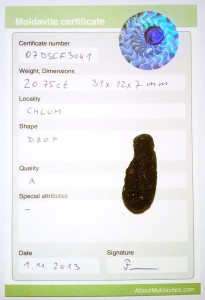 Moldavite certificate
Certificate number
07DSCF3041
Weight, Dimensions
20.75ct 31x12x7mm
Locality
CHLUM
Shape
DROP
Quality
A
Special attributes
–
Date
Signature
1.11.2013
AboutMoldavites.com